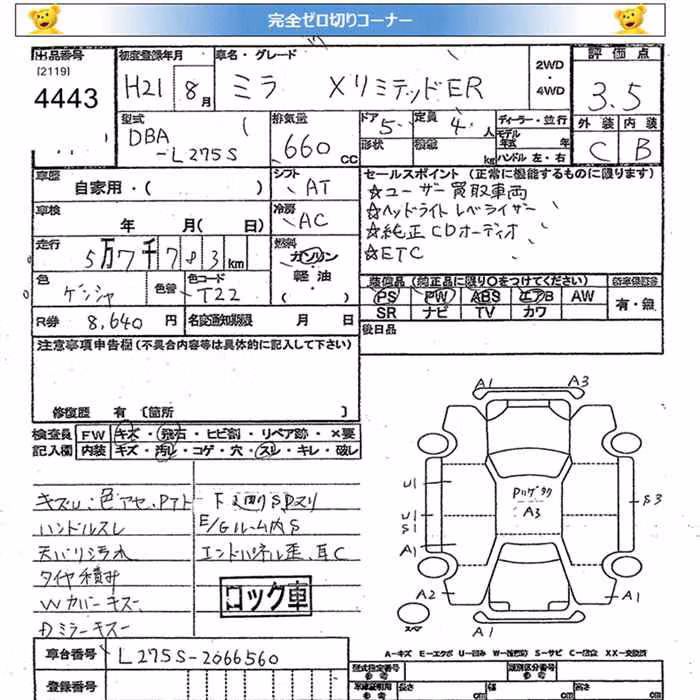 完全ゼロ切りコーナー
出品番号 初度登録年月 車名・グレード 2WD・4WD 評価点
[2119]
4443 H21 8月 ミラ XリミテッドER 3.5
型式 排気量 ドア 定員 ディーラー・並行 外装 内装
DBA-L275S 660cc 5 4人 モデル年式 年 C B
形状 積載 kg ハンドル 左・右
車歴 シフト セールスポイント (正常に機能するものに限ります)
自家用・( ) AT ☆ユーザー買取車両
車検 冷房 ☆ヘッドライトレベライザー
年 月( 日) AC ☆純正CDオーディオ
走行 燃料 ☆ETC
5万7千783km ガソリン・軽油・( )
色 色替 色コード 装備品 (純正品に限り○をつけてください) 新車保証書
ゲンシャ T22 PS PW ABS エアB AW 有・無
SR ナビ TV カワ
R券 8,640円 名変通知期限 月 日 後日品
注意事項申告欄 (不具合内容等は具体的に記入して下さい)
修復歴 有 [箇所 ]
検査員 FW キズ・飛石・ヒビ割・リペア跡・×要
記入欄 内装 キズ・汚り・コゲ・穴・スレ・キレ・破レ
キズU・色アセ、PTト
ハンドルスレ E/Gルーム内S
天バリ汚れ エンドパネル歪、耳C
タイヤ積み
Wカバーキズ
Dミラーキズ
ロック車
A1 A3
U1
U1
S1
A1
A2
A3
S3
A1
A1
スペア
A-キズ E-エクボ U-凹み W-(波修跡) S-サビ C-腐食 XX-交換済
車台番号 L275S-2066560
登録番号
型式指定番号 参考 類別区分番号 参考
長さ cm 幅 cm 高さ cm